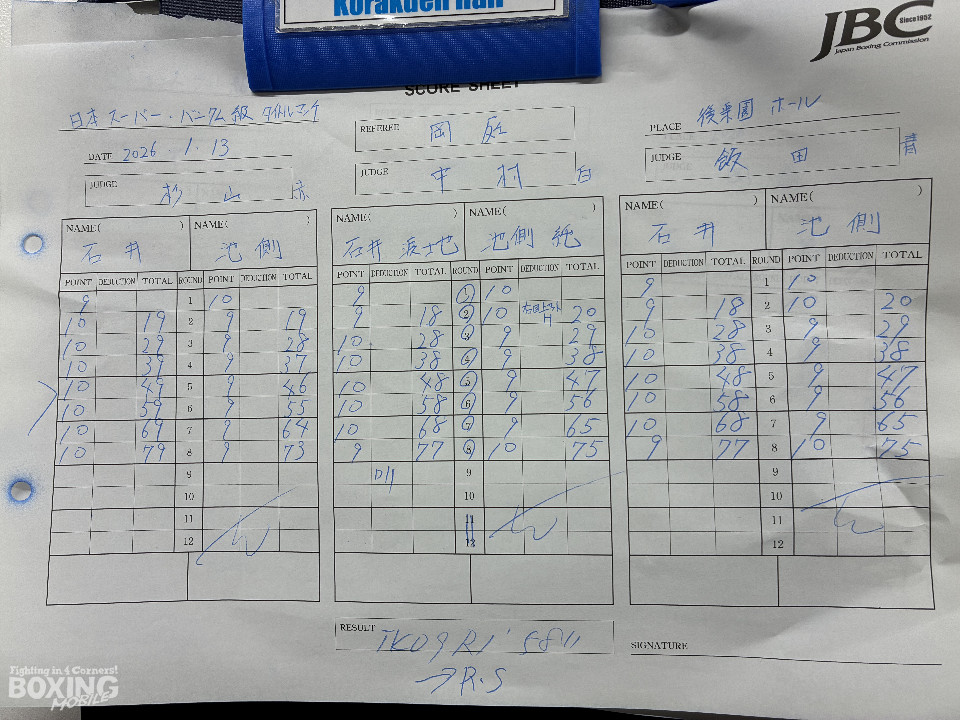 Korakuen Hall
JBC Since 1952
Japan Boxing Commission
SCORE SHEET
日本スーパー・バンタム級 タイトルマッチ
REFEREE
PLACE 後楽園 ホール
DATE 2026.1.13
JUDGE 杉山 赤
JUDGE 中村 白
JUDGE 飯田 青
NAME( ) NAME( ) NAME( ) NAME( ) NAME( ) NAME( )
石井 池側 石井 渡士也 池側 純 石井 池側
POINT DEDUCTION TOTAL ROUND POINT DEDUCTION TOTAL POINT DEDUCTION TOTAL ROUND POINT DEDUCTION TOTAL POINT DEDUCTION TOTAL ROUND POINT DEDUCTION TOTAL
9 1 10 9 1 10 9 1 10
10 19 2 9 19 9 18 2 10 20 9 18 2 10 20
10 29 3 9 28 10 28 3 9 29 10 28 3 9 29
10 39 4 9 37 10 38 4 9 38 10 38 4 9 38
10 49 5 9 46 10 48 5 9 47 10 48 5 9 47
10 59 6 9 55 10 58 6 9 56 10 58 6 9 56
10 69 7 9 64 10 68 7 9 65 10 68 7 9 65
10 79 8 9 73 9 77 8 10 75 9 77 8 10 75
9 9 9
10 10 10
11 11 11
12 12 12
RESULT TKO 9R 1' 58"
→R.S
SIGNATURE
Fighting in 4 Corners!
BOXING
MOBILE